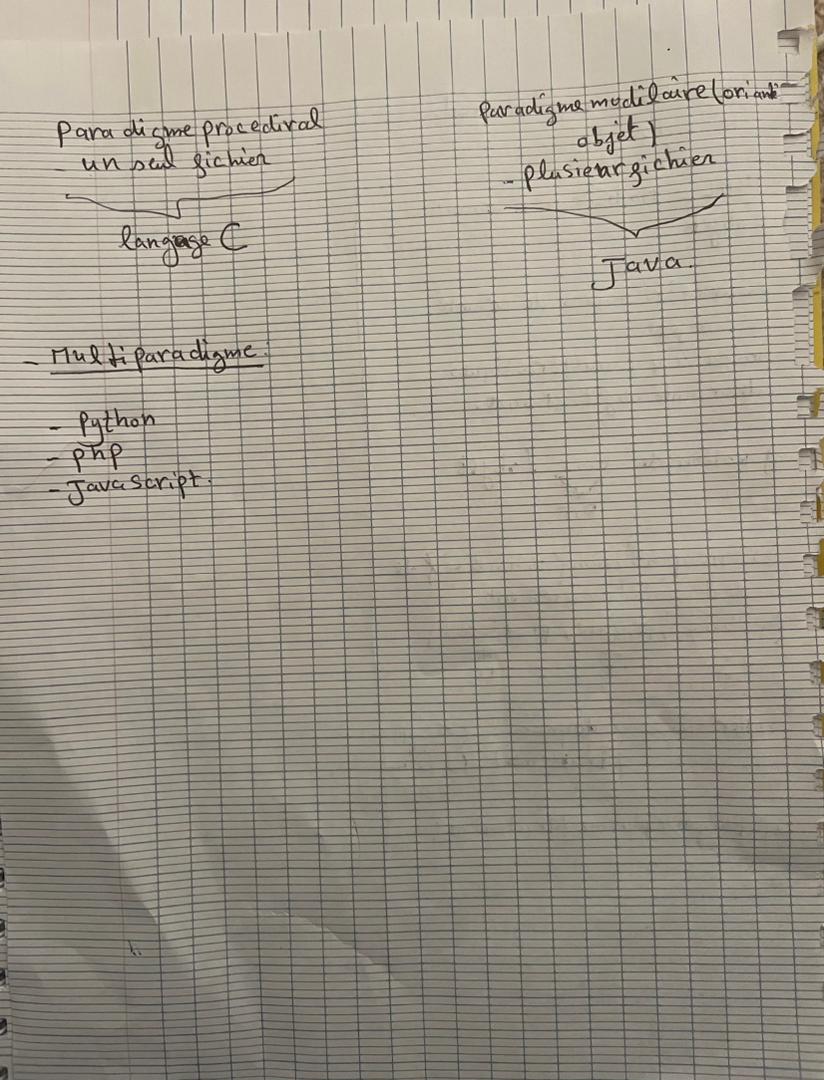 Paradigme procedural
- un seul fichier
langage C
Paradigme modilaire (orianté
objet)
- plusieur fichier
Java.
- Multiparadigme:
- Python
- php
- JavaScript.